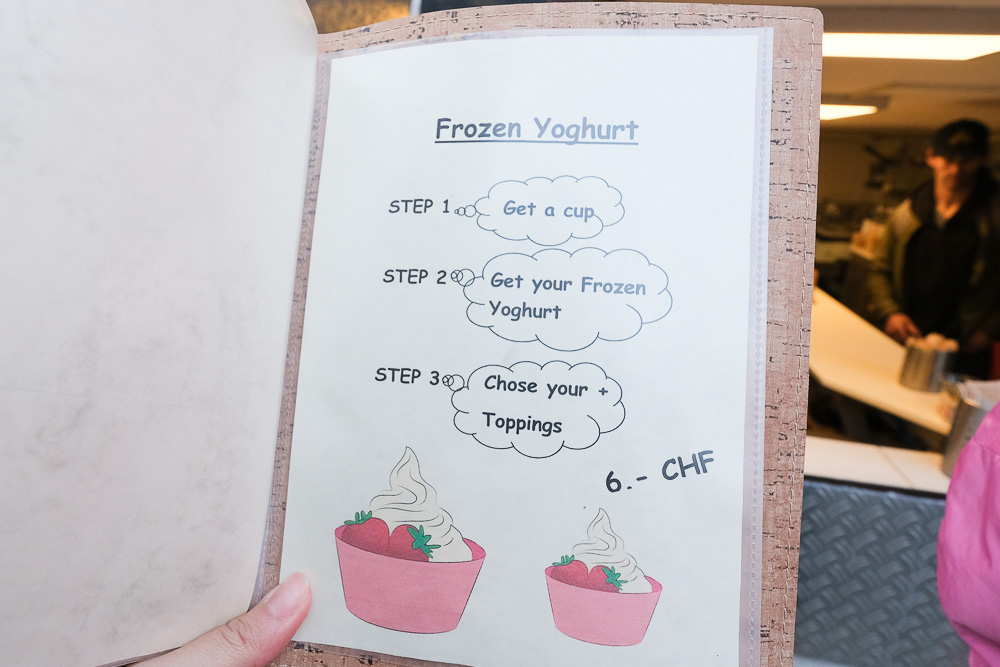 Frozen Yoghurt
STEP 1 Get a cup
STEP 2 Get your Frozen
Yoghurt
STEP 3 Chose your +
Toppings
6.- CHF